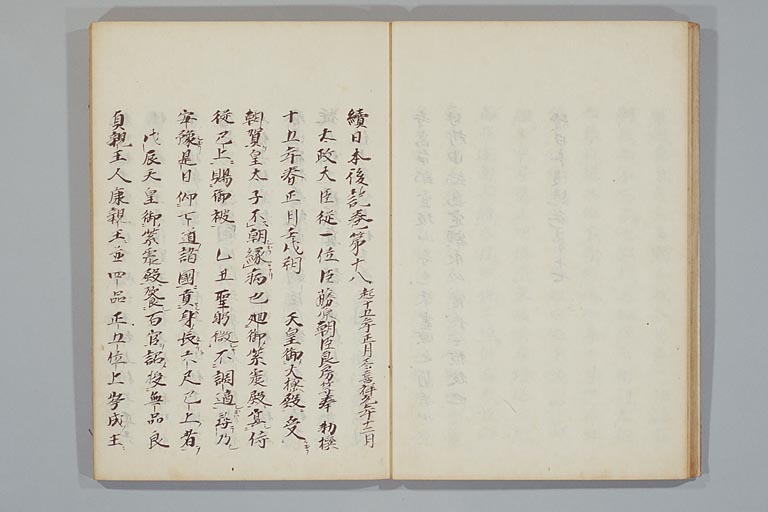 續日本後記巻第十八 起十五年正月尽嘉祥元年十二月
太政大臣從一位臣藤原朝臣良房等奉 勅撰
十五年春正月壬戌朔 天皇御大極殿受
朝賀皇太子不朝縁病也廻御紫宸殿宴侍
從已上賜御被 乙丑聖躬微不調適尋乃
平豫是日仰下道諸國貢身長六尺已上者
戊辰天皇御紫宸殿餐百官詔授無品良
貞親王人康親王並四品正五位上茅成王